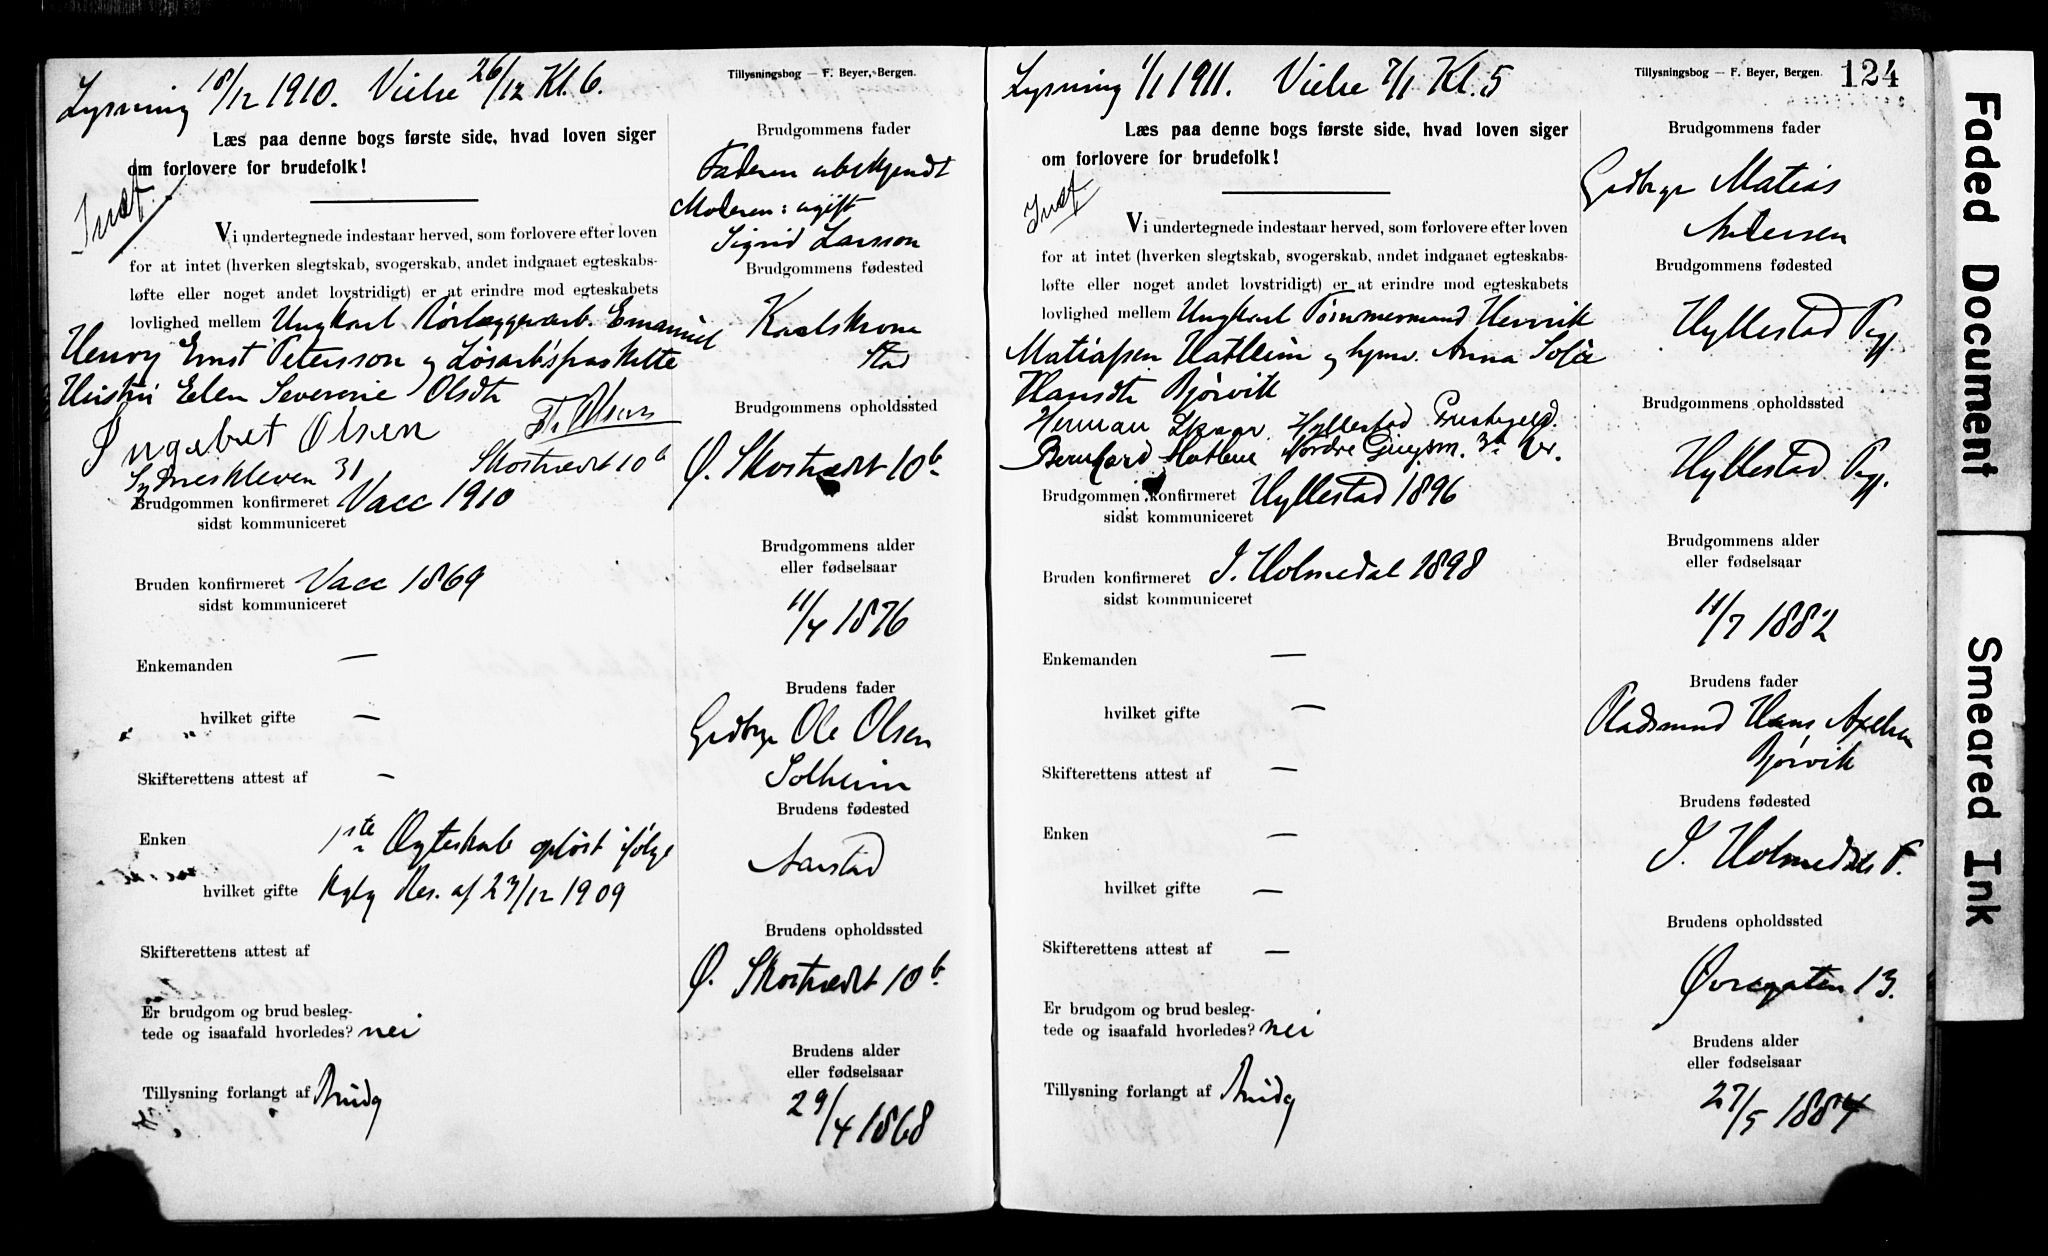 Lysning 18/12 1910. Vielse 26/12 Kl. 6.
Tillysningsbog — F. Beyer, Bergen.
Læs paa denne bogs første side, hvad loven siger
om forlovere for brudefolk!
Indf.
Vi undertegnede indestaar herved, som forlovere efter loven
for at intet (hverken slegtskab, svogerskab, andet indgaaet egteskabs-
løfte eller noget andet lovstridigt) er at erindre mod egteskabets
lovlighed mellem Ungkarl Rørlæggerarb. Emanuel
Henry Ernst Petersson og Løsarb. fraskilte
Hustru Elen Severine Olsdt
Ingebret Olsen
Sydneskleven 31
Olsen
Skostrædet 10b
Brudgommen konfirmeret Vacc 1910
sidst kommuniceret
Bruden konfirmeret Vacc 1869
sidst kommuniceret
Enkemanden —
hvilket gifte —
Skifterettens attest af —
Enken 1ste Ægteskab opløst ifølge
hvilket gifte Kglg Res. af 23/12 1909
Skifterettens attest af
Er brudgom og brud besleg-
tede og isaafald hvorledes? nei
Tillysning forlangt af Brudg
Brudgommens fader
Faderen ubekjendt
Moderen: ugift
Sigrid Larsson
Brudgommens fødested
Karlskrona
Stad
Brudgommens opholdssted
Ø. Skostrædet 10b
Brudgommens alder
eller fødselsaar
11/4 1876
Brudens fader
Grdbgr Ole Olsen
Solheim
Brudens fødested
Aarstad
Brudens opholdssted
Ø. Skostrædet 10b
Brudens alder
eller fødselsaar
29/4 1868
Lysning 1/1 1911. Vielse 7/1 Kl. 5
Tillysningsbog — F. Beyer, Bergen.
124
Læs paa denne bogs første side, hvad loven siger
om forlovere for brudefolk!
Indf
Vi undertegnede indestaar herved, som forlovere efter loven
for at intet (hverken slegtskab, svogerskab, andet indgaaet egteskabs-
løfte eller noget andet lovstridigt) er at erindre mod egteskabets
lovlighed mellem Ungkarl Tømmermand Henrik
Matiassen Hatleim og hjmv. Anna Sofie
Hansdt Bjørvik
Herman Skaar. Hyllestad Prestegeld.
Bernhard Hatleim Nordre 3
Brudgommen konfirmeret Hyllestad 1896
sidst kommuniceret
Bruden konfirmeret I. Holmedal 1898
sidst kommuniceret
Enkemanden —
hvilket gifte —
Skifterettens attest af —
Enken —
hvilket gifte —
Skifterettens attest af —
Er brudgom og brud besleg-
tede og isaafald hvorledes? nei
Tillysning forlangt af Brudg
Brudgommens fader
Grdbgr Matias
Andersen
Brudgommens fødested
Hyllestad Pgj.
Brudgommens opholdssted
Hyllestad Pgj.
Brudgommens alder
eller fødselsaar
11/7 1882
Brudens fader
Pladsmand Hans Axelsen
Bjørvik
Brudens fødested
I. Holmedals P.
Brudens opholdssted
Øvregaten 13.
Brudens alder
eller fødselsaar
27/5 1884
Faded Document
Smeared Ink